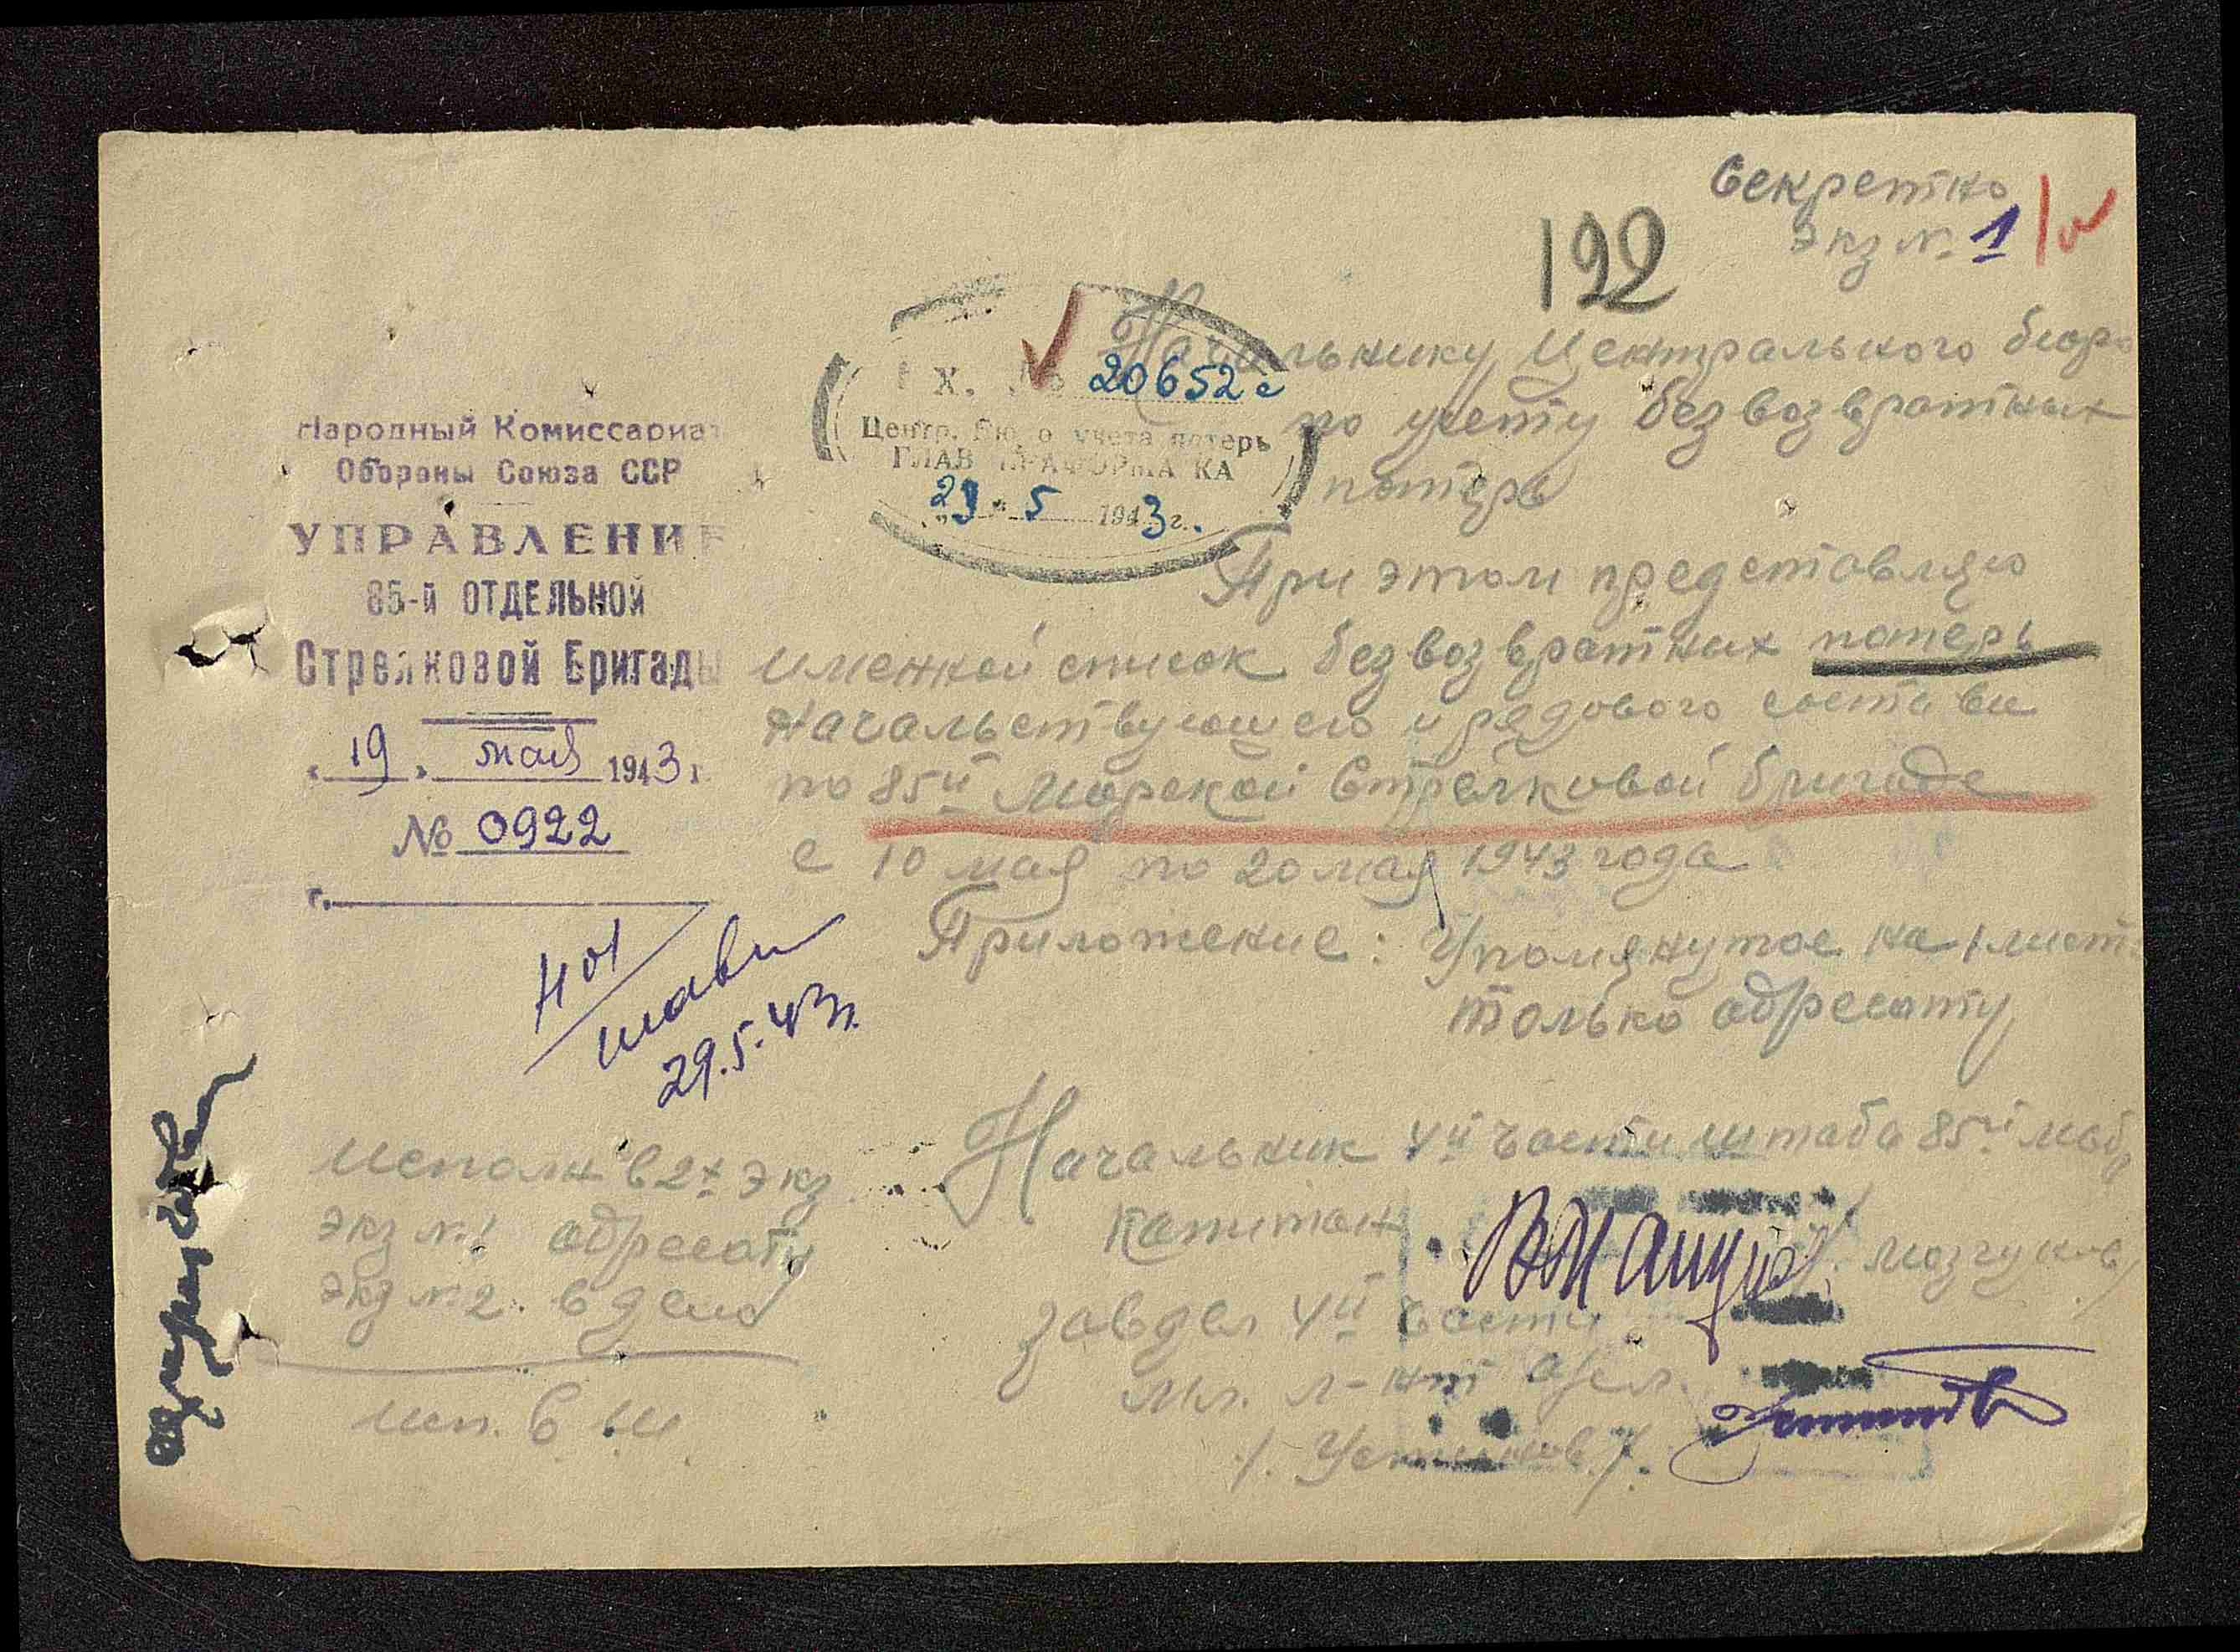 Секретно
Экз № 1
192
Начальнику Центрального бюро
по учету безвозвратных
потерь
Вх. № 20652с
Центр. Бюро учета потерь
ГЛАВУПРАФОРМА КА
"29" 5 1943 г.
Народный Комиссариат
Обороны Союза ССР
УПРАВЛЕНИЕ
85-й ОТДЕЛЬНОЙ
Стрелковой Бригады
"19" мая 1943 г.
№ 0922
г.
При этом представляю
именной список безвозвратных потерь
начальствующего и рядового состава
по 85й Морской Стрелковой бригаде
с 10 мая по 20 мая 1943 года
Приложение: Упомянутое на 1 лист.
только адресату
Н01
29.5.43г.
Начальник 4й части штаба 85й мсбр
Капитан
завдел 4й части
мл. л-нт адм.
/. Устинов /.
исполн в 2х экз
экз №1 адресату
экз №2. в дело
исп. В Ш